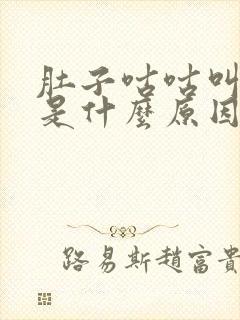 肚子咕咕叫
是什麼原因
路易斯趙富貴